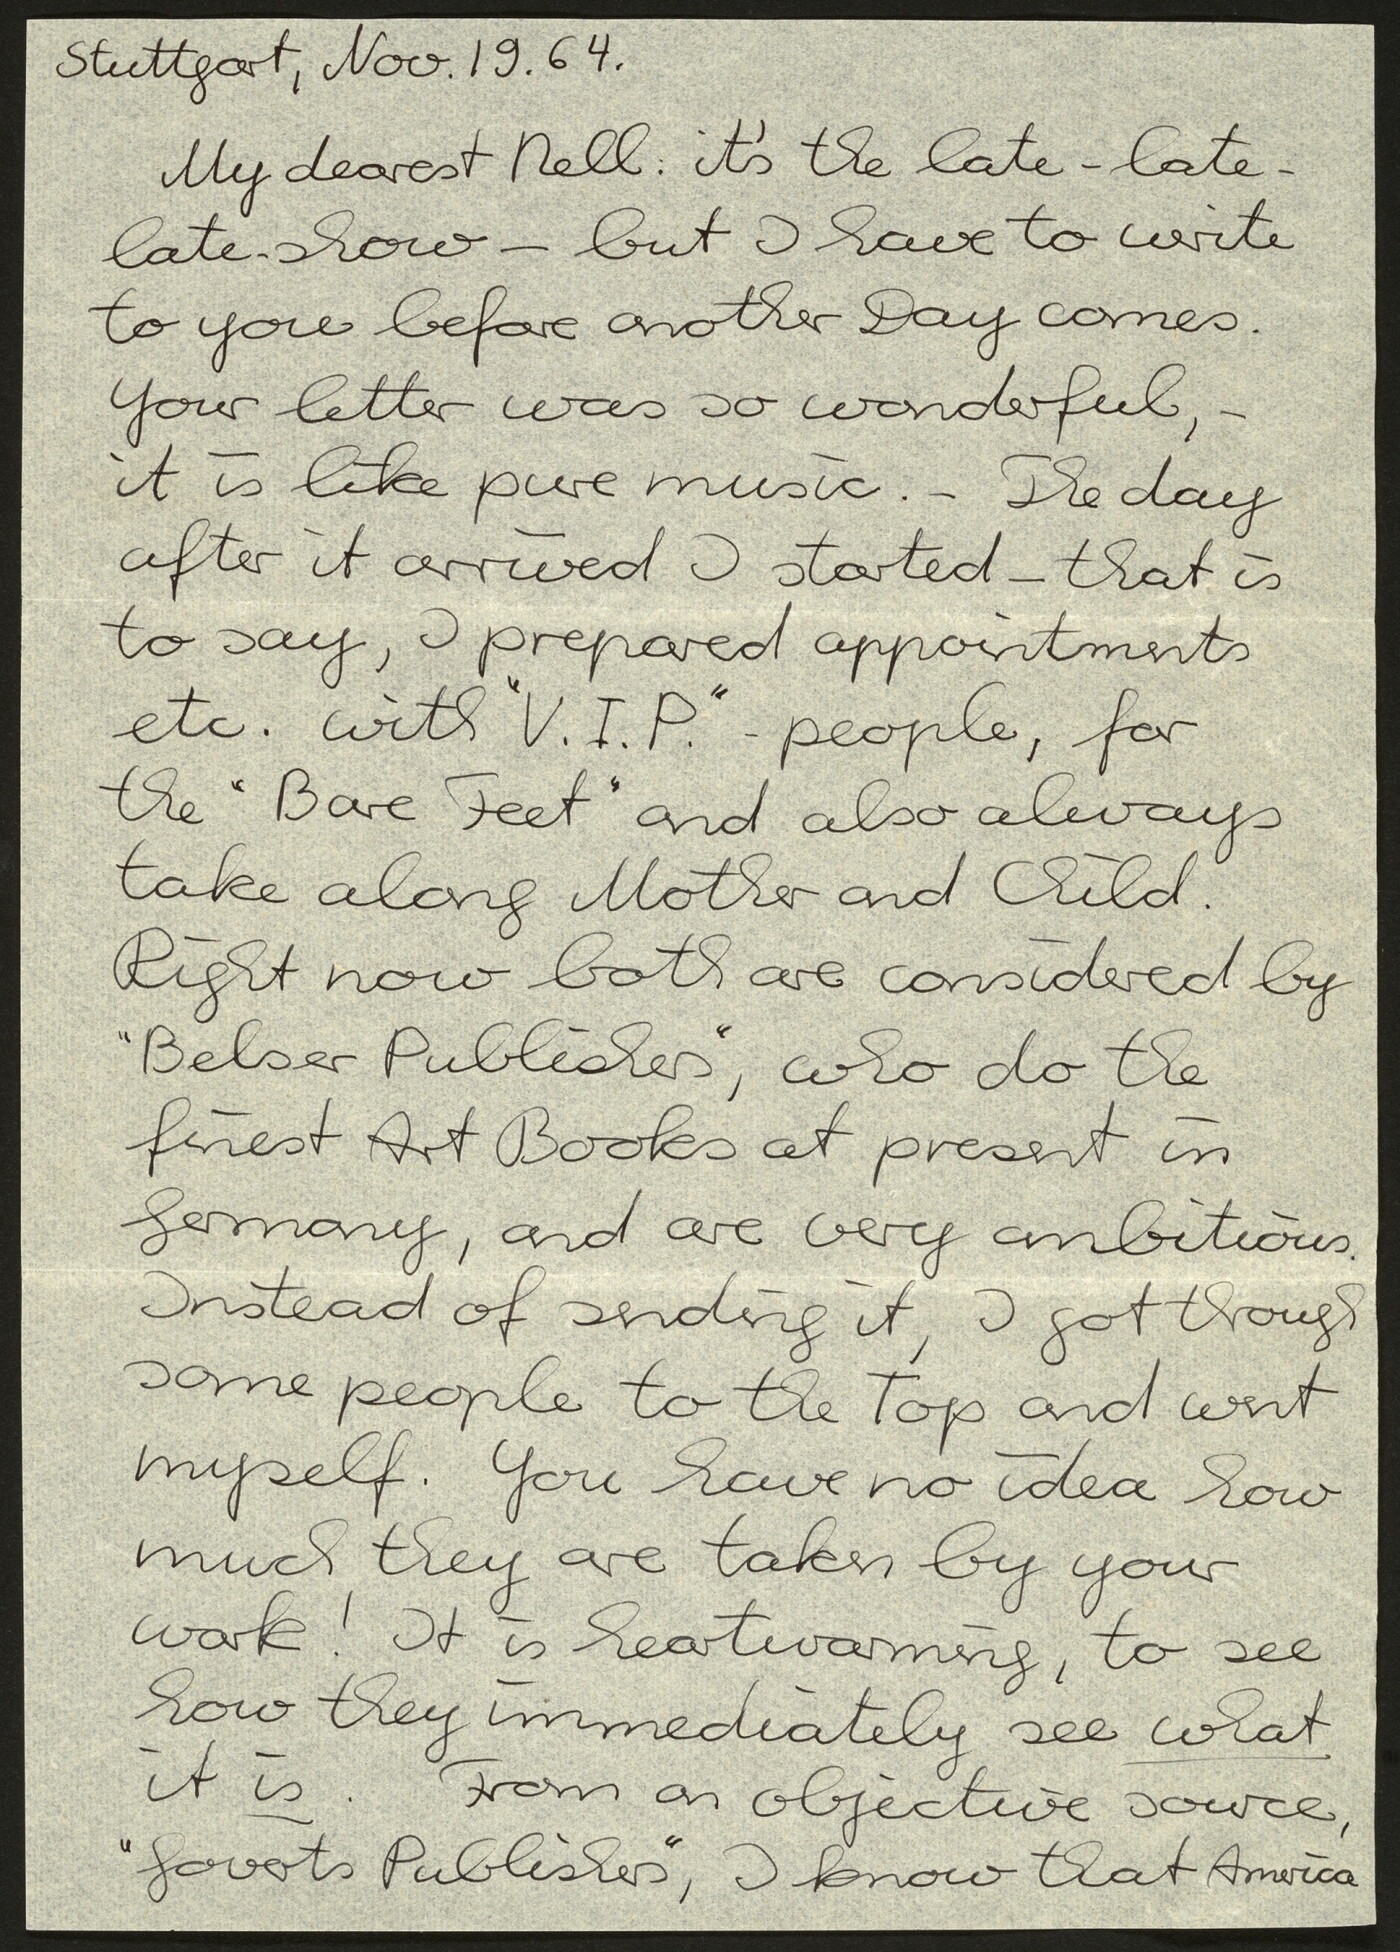 Stuttgart, Nov. 19. 64.
My dearest Nell: it's the late - late -
late - show — but I have to write
to you before another Day comes.
Your letter was so wonderful, -
it is like pure music. - The day
after it arrived I started — that is
to say, I prepared appointments
etc. with "V.I.P." - people, for
the "Bare Feet" and also always
take along Mother and Child.
Right now both are considered by
"Belser Publishers", who do the
finest Art Books at present in
Germany, and are very ambitious.
Instead of sending it, I got through
some people to the Top and went
myself. You have no idea how
much they are taken by your
work! It is heartwarming, to see
how they immediately see what
it is. From an objective source,
"Goverts Publishers", I know that America